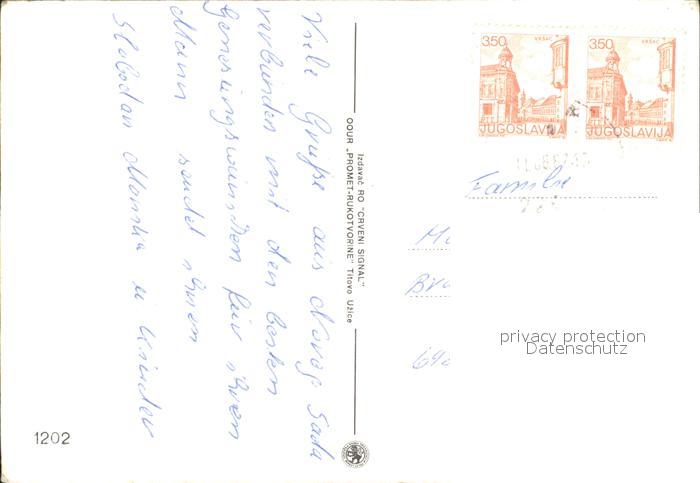 Viele Grüße aus Novog Sada
verbunden mit den besten
Genesungswünschen für Ihren
Mann sendet Ihnen
Slobodan Monika u Kinder
Izdavač RO "CRVENI SIGNAL"
OOUR „PROMET-RUKOTVORINE" Titovo Užice
350 VRŠAC
JUGOSLAVIJA
350 VRŠAC
JUGOSLAVIJA
Familie
privacy protection
Datenschutz
1202